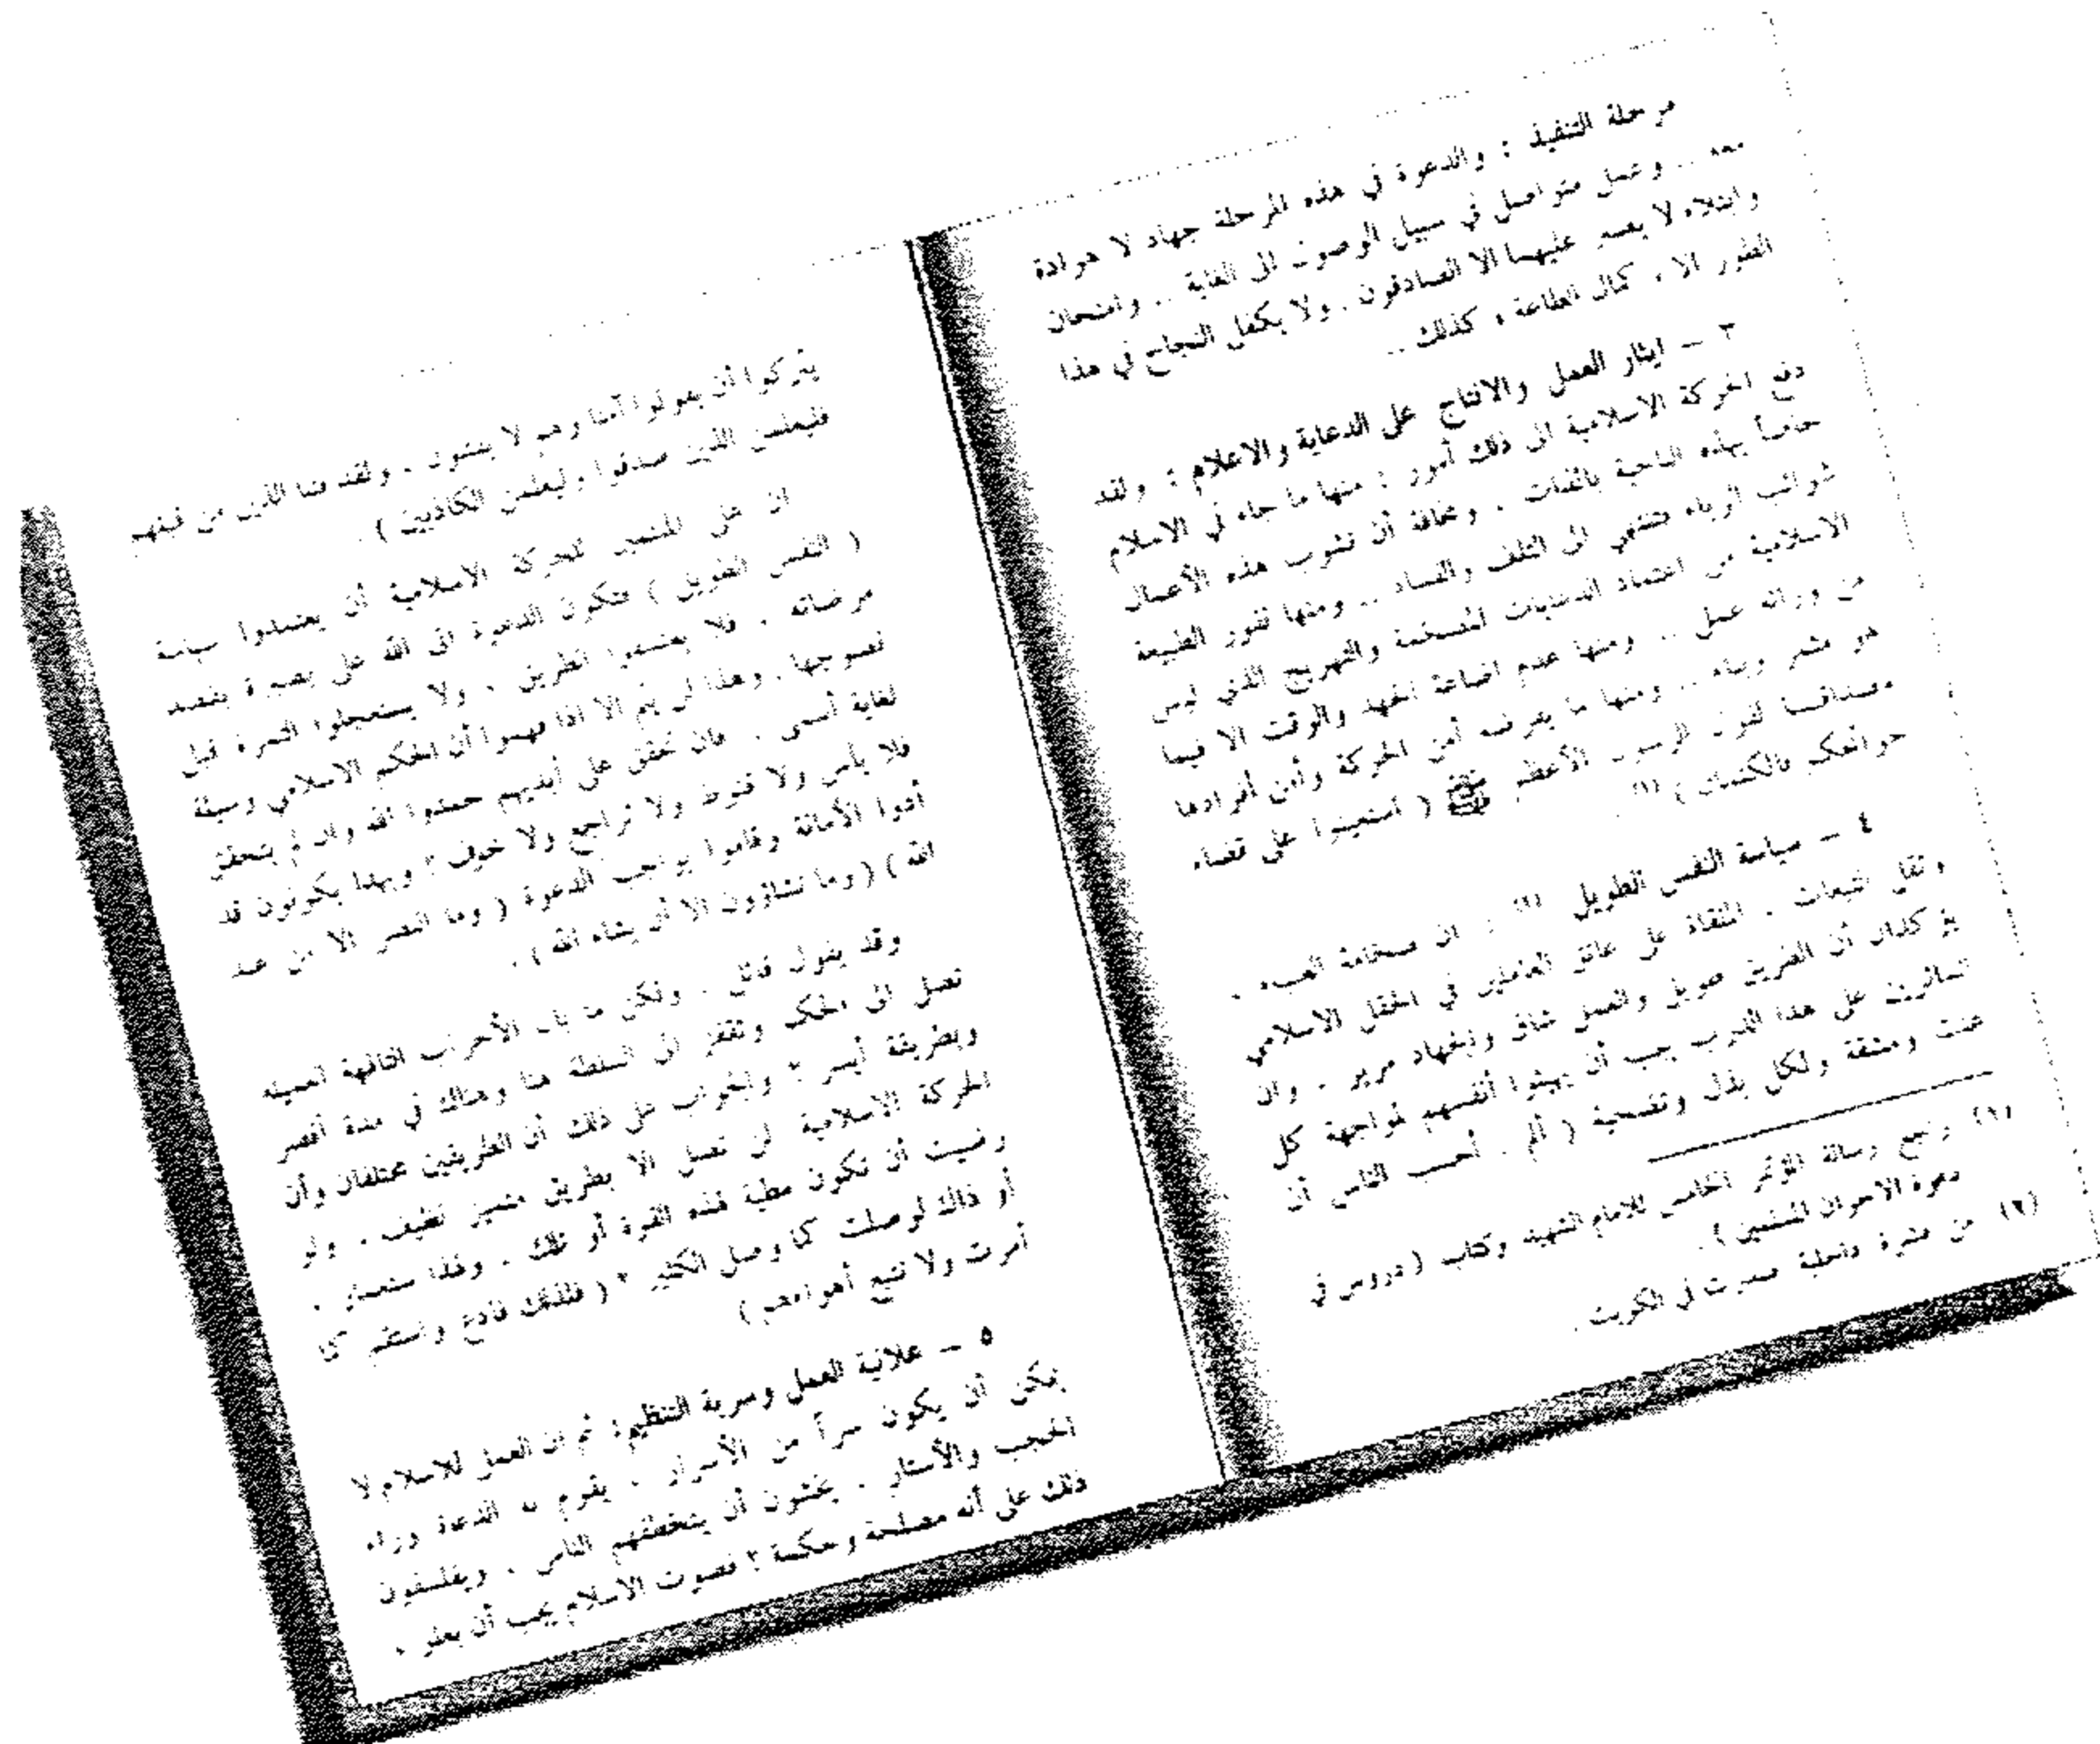 مرحلة التنفيذ : والدعوة في هذه المرحلة جهاد لا هوادة
معه .. وعمل متواصل في سبيل الوصول الى الغاية .. وامتحان
وابتلاء لا يصبر عليهما الا الصادقون . ولا يكفل النجاح في هذا
الطور الا « كمال الطاعة » كذلك ..
٣ – ايثار العمل والانتاج على الدعاية والاعلام : ولقد
دفع الحركة الاسلامية الى ذلك أمور : منها ما جاء في الاسلام
خاصاً بهذه الناحية بالذات . ومخافة أن تشوب هذه الأعمال
شوائب الرياء فتنتهي الى التلف والفساد .. ومنها نفور الطبيعة
الاسلامية من اعتماد الدعايات المضخمة والتهريج الذي ليس
من ورائه عمل .. ومنها عدم اضاعة الجهد والوقت الا فيما
هو مثمر وبناء .. ومنها ما يفرضه أمن الحركة وأمن أفرادها
مصداقاً لقول الرسول الأعظم ﷺ ( استعينوا على قضاء
حوائجكم بالكتمان ) (١) .
٤ – سياسة النفس الطويل (٢) : ان ضخامة العبء .
وثقل التبعات . الملقاة على عاتق العاملين في الحقل الاسلامي
يؤكدان أن الطريق طويل والعمل شاق والجهاد مرير . وان
السائرين على هذا الدرب يجب أن يهيئوا أنفسهم لمواجهة كل
عنت ومشقة ولكل بذل وتضحية ( ألم . أحسب الناس أن
(١) رسالة المؤتمر الخامس للامام الشهيد وكتاب ( دروس في
دعوة الاخوان المسلمين ) .
(٢) من نشرة داخلية صدرت في الكويت .
يتركوا أن يقولوا آمنا وهم لا يفتنون . ولقد فتنا الذين من قبلهم
فليعلمن الذين صدقوا وليعلمن الكاذبين ) .
ان على المنتمين للحركة الاسلامية أن يعتمدوا سياسة
( النفس الطويل ) فتكون الدعوة الى الله على بصيرة بقصد
مرضاته . فلا يستبعدوا الطريق . ولا يستعجلوا الثمرة قبل
نضوجها . وهذا لن يتم الا اذا فهموا أن الحكم الاسلامي وسيلة
لغاية أسمى . فان تحقق على أيديهم حمدوا الله وان لم يتحقق
فلا يأس ولا قنوط ولا تراجع ولا خوف ؛ وبهذا يكونون قد
أدوا الأمانة وقاموا بواجب الدعوة ( وما النصر الا من عند
الله ) ( وما تشاؤون الا أن يشاء الله ) .
وقد يقول قائل . ولكن ما بال الأحزاب التافهة العميلة
تصل الى الحكم وتقفز الى السلطة هنا وهناك في مدة أقصر
وبطريقة أيسر ؟ والجواب على ذلك أن الطريقين مختلفان وأن
الحركة الاسلامية لن تصل الا بطريق متميز نظيف . ولو
رضيت أن تكون مطية لهذه القوة أو تلك . ولهذا
أو ذاك لوصلت كما وصل الكثير ؟ ( فلذلك فادع واستقم كما
أمرت ولا تتبع أهواءهم )
٥ – علانية العمل وسرية التنظيم : ثم ان العمل للاسلام لا
يمكن أن يكون سراً من الأسرار . يقوم به الدعاة وراء
الحجب والأستار . يخشون أن يتخطفهم الناس . ويفلسفون
ذلك على أنه مصلحة وحكمة ؟ فصوت الاسلام يجب أن يعلو .